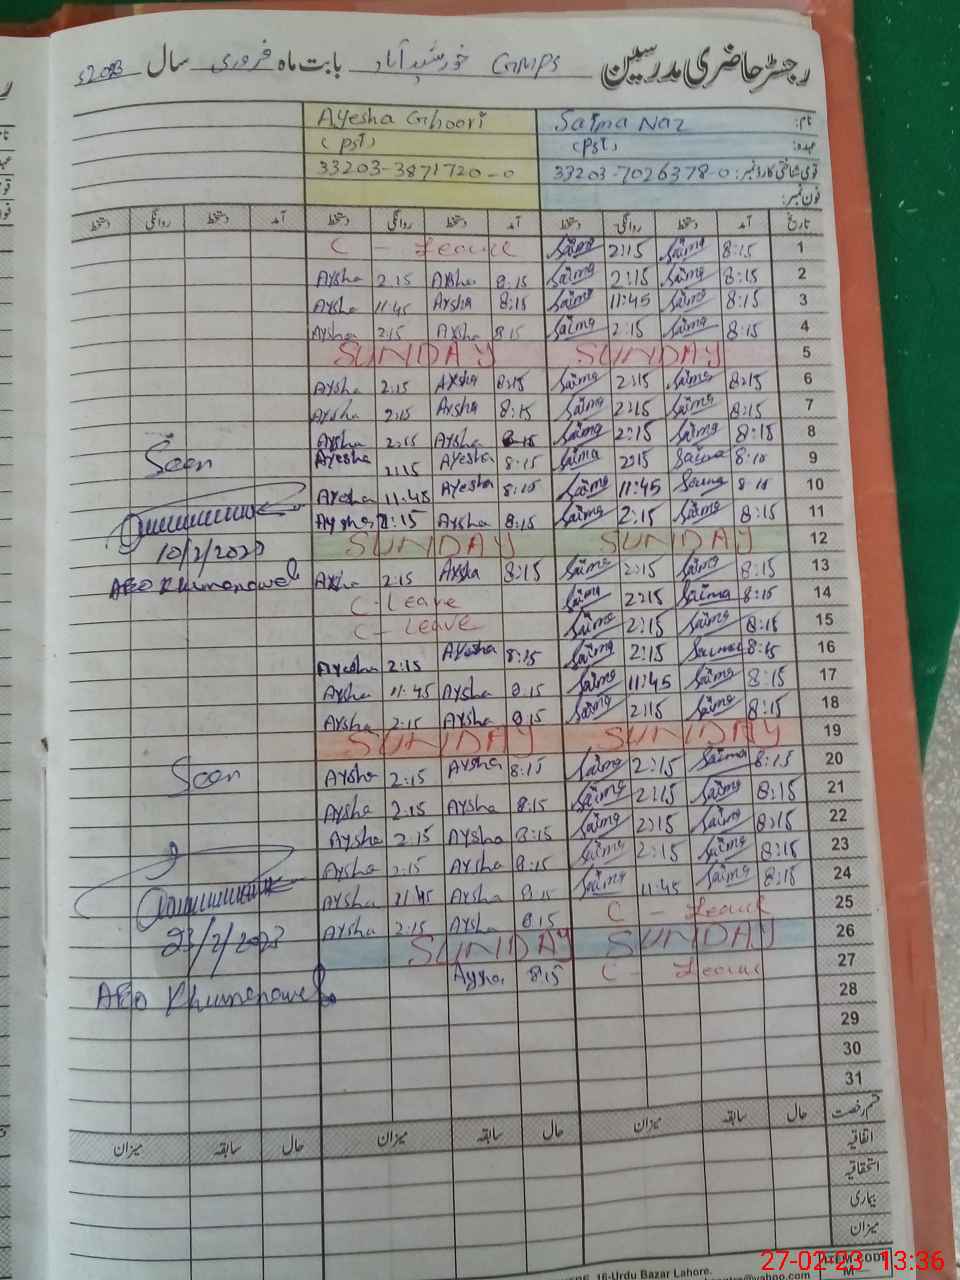 رجسٹر حاضری مدرسین GMPS خورشید آباد بابت ماہ فروری سال 2023ء
نام: Saima Naz Ayesha Ghoori
عہدہ: (PST) (PST)
قومی شناختی کارڈ نمبر: 33203-7026378-0 33203-3871720-0
فون نمبر:
تاریخ آمد دستخط روانگی دستخط آمد دستخط روانگی دستخط آمد دستخط روانگی دستخط
1 8:15 Saima 2:15 Saima C - Leave
2 8:15 Saima 2:15 Saima 8:15 Aysha 2:15 Aysha
3 8:15 Saima 11:45 Saima 8:15 Aysha 11:45 Aysha
4 8:15 Saima 2:15 Saima 8:15 Aysha 2:15 Aysha
5 SUNDAY SUNDAY
6 8:15 Saima 2:15 Saima 8:15 Aysha 2:15 Aysha
7 8:15 Saima 2:15 Saima 8:15 Aysha 2:15 Aysha
8 8:15 Saima 2:15 Saima 8:15 Aysha 2:15 Aysha
9 8:15 Saima 2:15 Saima 8:15 Ayesha 2:15 Ayesha Seen
10 8:15 Saima 11:45 Saima 8:15 Ayesha 11:45 Ayesha
11 8:15 Saima 2:15 Saima 8:15 Aysha 2:15 Aysha
12 SUNDAY SUNDAY 10/2/2023
13 8:15 Saima 2:15 Saima 8:15 Aysha 2:15 Aysha AEO
14 8:15 Saima 2:15 Saima C-Leave
15 8:15 Saima 2:15 Saima C- Leave
16 8:15 Saima 2:15 Saima 8:15 Ayesha 2:15 Ayesha
17 8:15 Saima 11:45 Saima 8:15 Aysha 11:45 Aysha
18 8:15 Saima 2:15 Saima 8:15 Aysha 2:15 Aysha
19 SUNDAY SUNDAY
20 8:15 Saima 2:15 Saima 8:15 Aysha 2:15 Aysha Seen
21 8:15 Saima 2:15 Saima 8:15 Aysha 2:15 Aysha
22 8:15 Saima 2:15 Saima 8:15 Aysha 2:15 Aysha
23 8:15 Saima 2:15 Saima 8:15 Aysha 2:15 Aysha
24 8:15 Saima 11:45 Saima 8:15 Aysha 11:45 Aysha
25 C - Leave 8:15 Aysha 2:15 Aysha
26 SUNDAY SUNDAY 23/2/2023
27 C - Leave 8:15 Aysha
28 AEO
29
30
31
قسم رخصت حال سابقہ میزان حال سابقہ میزان حال سابقہ میزان
اتفاقیہ
استحقاقیہ
بیماری
میزان
ITEM CODE
M
16-Urdu Bazar Lahore.
@yahoo.com
27-02-23 13:36